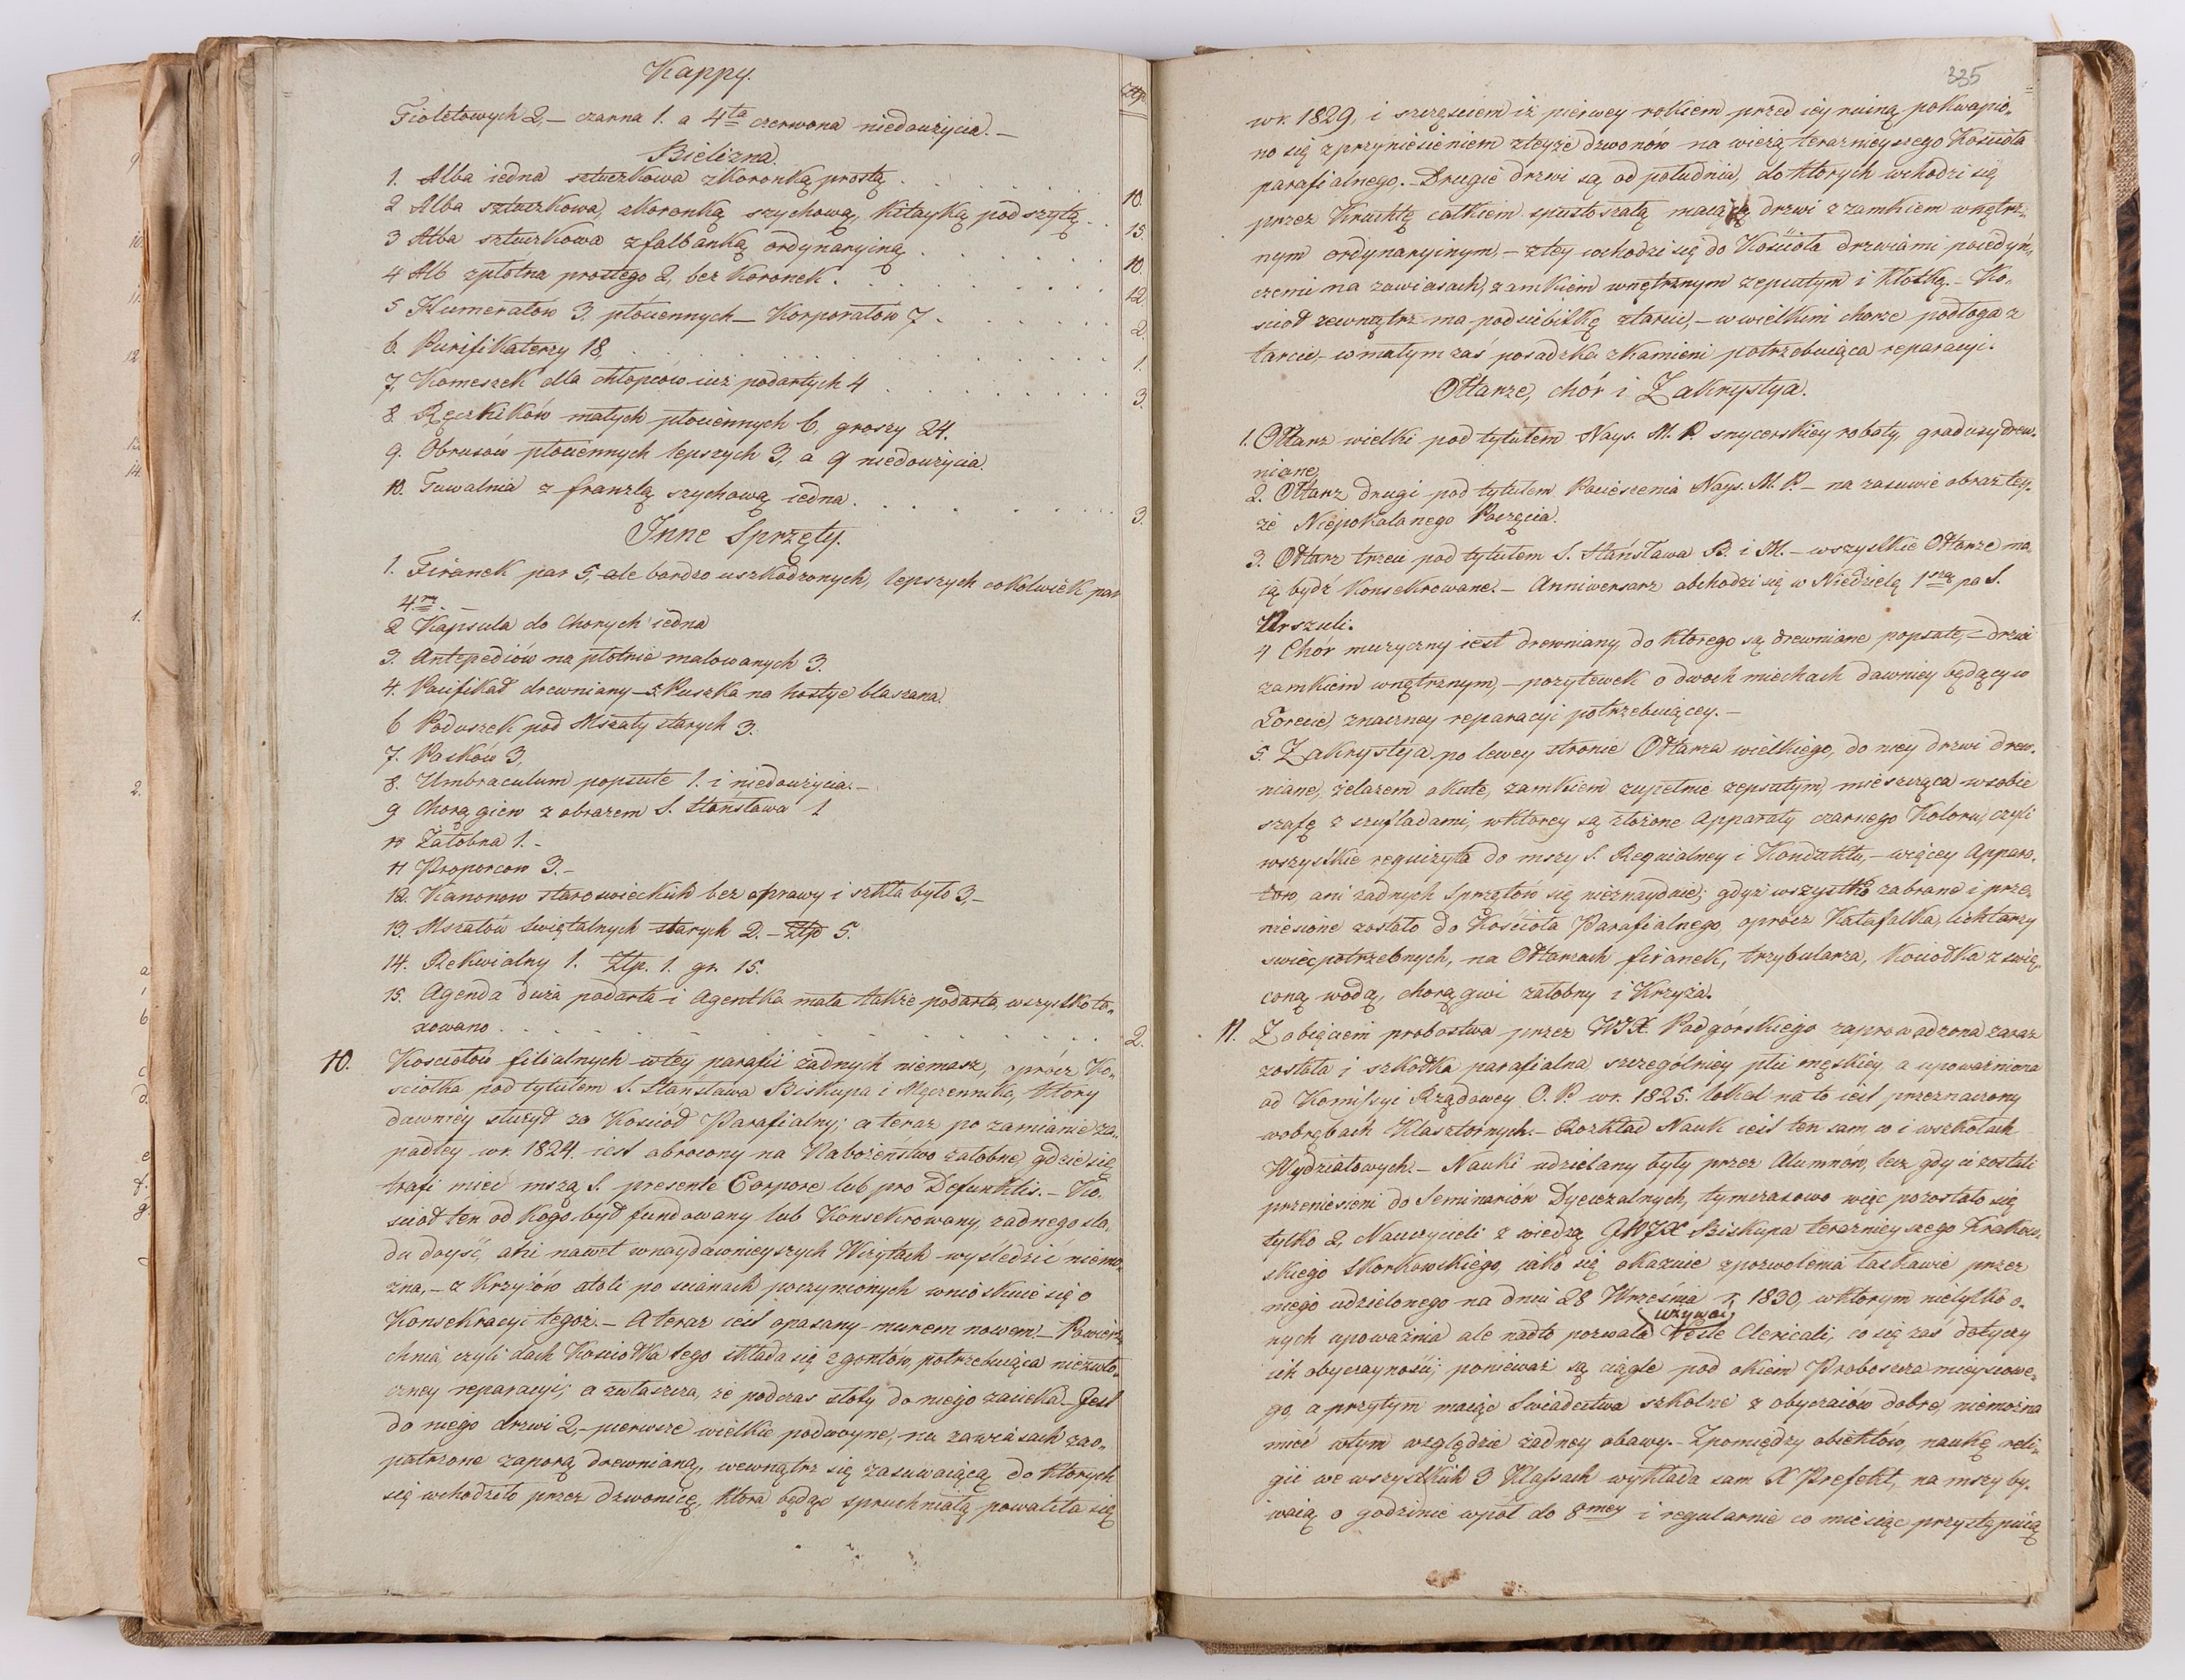 Kappy.
Złp
Fioletowych 2, – czarna 1. a 4ta czerwona niedoużycia. –
Bielizna.
1. Alba iedna sztuczkowa z koronką prostą . . . . . 10.
2 Alba sztuczkowa, z koronką szychową, kitayką podszytą . . 15.
3 Alba sztuczkowa z falbanką ordynaryiną . . . . . 10.
4 Alb z płotna prostego 2, bez Koronek . . . . . 12.
5 Humerałow 3. płóciennych – Korporałow 7 . . . . . 2.
6. Purifikaterzy 18, . . . . . 1.
7, Komeszek dla chłopców iuż podartych 4 . . . . . 3.
8 Ręczników małych płóciennych 6, groszy 24.
9. Obrusów płóciennych lepszych 3, a 9 niedoużycia.
10. Tuwalnia z franzlą szychową iedna . . . . . 3.
Inne Sprzęty.
1. Firanek par 5, ale bardzo uszkodzonych, lepszych cokolwiek par
4m. –
2 Kapsuła do Chorych iedna
3. Antepediów na płotnie malowanych 3.
4. Pacifikał drewniany – 5 Puszka na hostye blaszana.
6 Poduszek pod Mszały starych 3.
7. Pasków 3,
8. Umbraculum popsute 1. i niedoużycia. –
9 Chorągiew z obrazem S. Stanisława 1
10 Żałobna 1. –
11 Proporcow 3. –
12. Kanonow staroswieckich bez oprawy i szkła było 3, –
13. Mszałów świętalnych starych 2. – Złp 5.
14. Rekwialny 1. Złp. 1. gr. 15.
15. Agenda duża podarta i Agentka mała także podarta, wszystko to-
xowano . . . . . 2.
10. Kościołow filialnych w tey parafii żadnych niemasz, oprócz Ko-
ściołka pod tytułem S. Stanisława Biskupa i Męczennika, który
dawniey służył za Kościoł Parafialny; a teraz po zamianie za-
padłey w r. 1824. iest obrocony na Nabożeństwo żałobne, gdzie się
trafi mieć mszą S. presente Corpore lub pro Defunktis. – Ko-
ścioł ten od kogo był fundowany lub Konsekrowany, żadnego śla-
du doyść, ani nawet w naydawnieyszych Wizytach wyśledzić niemo-
żna, – z Krzyżów atoli po scianach poczynionych wnioskuie się o
Konsekracyi tegoż. – A teraz iest opasany murem nowem. – Powierz-
chnia, czyli dach Kościołka tego składa się z gontów, potrzebuiąca niezwło-
czney reparacyi; a zwłaszcza, że podczas słoty do niego zacieka. – Jest
do niego drzwi 2, – pierwsze wielkie podwoyne, na zawiasach zao-
patrzone zaporą drewnianą, wewnątrz się zasuwaiącą do których
się wchodziło przez dzwonicę, która będąc spruchniałą powaliła się
335
w r. 1829, i szczęściem iż pierwey rokiem przed iey ruiną pokwapio-
no się z przyniesieniem zteyże dzwonów na wieżą teraznieyszego Kościoła
parafialnego. – Drugie drzwi są od południa, do których wchodzi się
przez Kruchtę całkiem spustoszałą maiącą drzwi z zamkiem wnętrz-
nym ordynaryinym, – z tey wchodzi się do Kościoła drzwiami poiedyń-
czemi na zawiasach, z zamkiem wnętrznym zepsutym i kłotką. – Ko-
ścioł zewnątrz ma podsiebitkę z tarcic, – w wielkim chorze podłoga z
tarcic – w małym zaś posadzka z kamieni potrzebuiąca reparacyi.
Ołtarze, chór i Zakrystya.
1. Ołtarz wielki pod tytułem Nays. M. P. snycerskiey roboty, gradusy drew-
niane,
2. Ołtarz drugi pod tytułem Pocieszenia Nays. M. P. – na zasuwie obraz tey-
że Niepokalanego Poczęcia.
3. Ołtarz trzeci pod tytułem S. Stanisława B. i M. – wszystkie Ołtarze ma-
ią bydź Konsekrowane. – Anniwersarz obchodzi się w Niedzielę 1szą po S.
Urszuli.
4 Chór muzyczny iest drewniany, do ktorego są drewniane popsute, – drzwi
zamkiem wnętrznym, – pozytewek o dwoch miechach dawniey będący w
Lorecie, znaczney reparacyi potrzebuiącey. –
5. Zakrystya po lewey stronie Ołtarza wielkiego, do niey drzwi drew-
niane, żelazem okute, zamkiem zupełnie zepsutym, mieszcząca w sobie
szafę z szufladami, w ktorey są złożone Apparaty czarnego Koloru, czyli
wszystkie requizyta do mszy S. Requialney i Konduktu, – więcey Appara-
tow, ani żadnych Sprzętów się nieznayduie; gdyż wszystko zabrane i prze-
niesione zostało do Kościoła Parafialnego, oprócz Katafalka, lichtarzy
swiec potrzebnych, na Ołtarzach firanek, trzybularza, Kociołka z świę-
coną wodą, chorągwi żałobny i Krzyża.
11. Z obięciem probostwa przez WJX. Podgórskiego zaprowadzona zaraz
została i szkółka parafialna szczególniey płci męskiey, a upoważniona
od Komissyi Rządowey O. P. w r. 1825. lokal na to iest przeznaczony
w obrębach Klasztornych. – Rozkład Nauk iest ten sam co i w szkołach
Wydziałowych. – Nauki udzielany były przez Alumnów, lecz gdy ci zostali
przeniesieni do Seminariów Dyecezalnych, tymczasowo więc pozostało się
tylko 2, Nauczycieli z wiedzą JWJX Biskupa teraznieyszego Krakow-
skiego Skorkowskiego, iako się okazuie z pozwolenia łaskawie przez
niego udzielonego na dniu 28 Września r. 1830, w ktorym nietylko o-
nych upoważnia ale nadto pozwala używać Veste Clericali, co się zaś dotyczy
ich obyczayności; ponieważ są ciągle pod okiem Proboszcza mieyscowe-
go, a przytym maiąc świadectwa szkolne z obyczaiów dobre, niemożna
mieć w tym względzie żadney obawy. – Zpomiędzy obiektów, naukę reli-
gii we wszystkich 3 Klassach wykłada sam X Prefekt, na mszy by-
waią o godzinie wpoł do 8mey i regularnie co miesiąc przystępuią